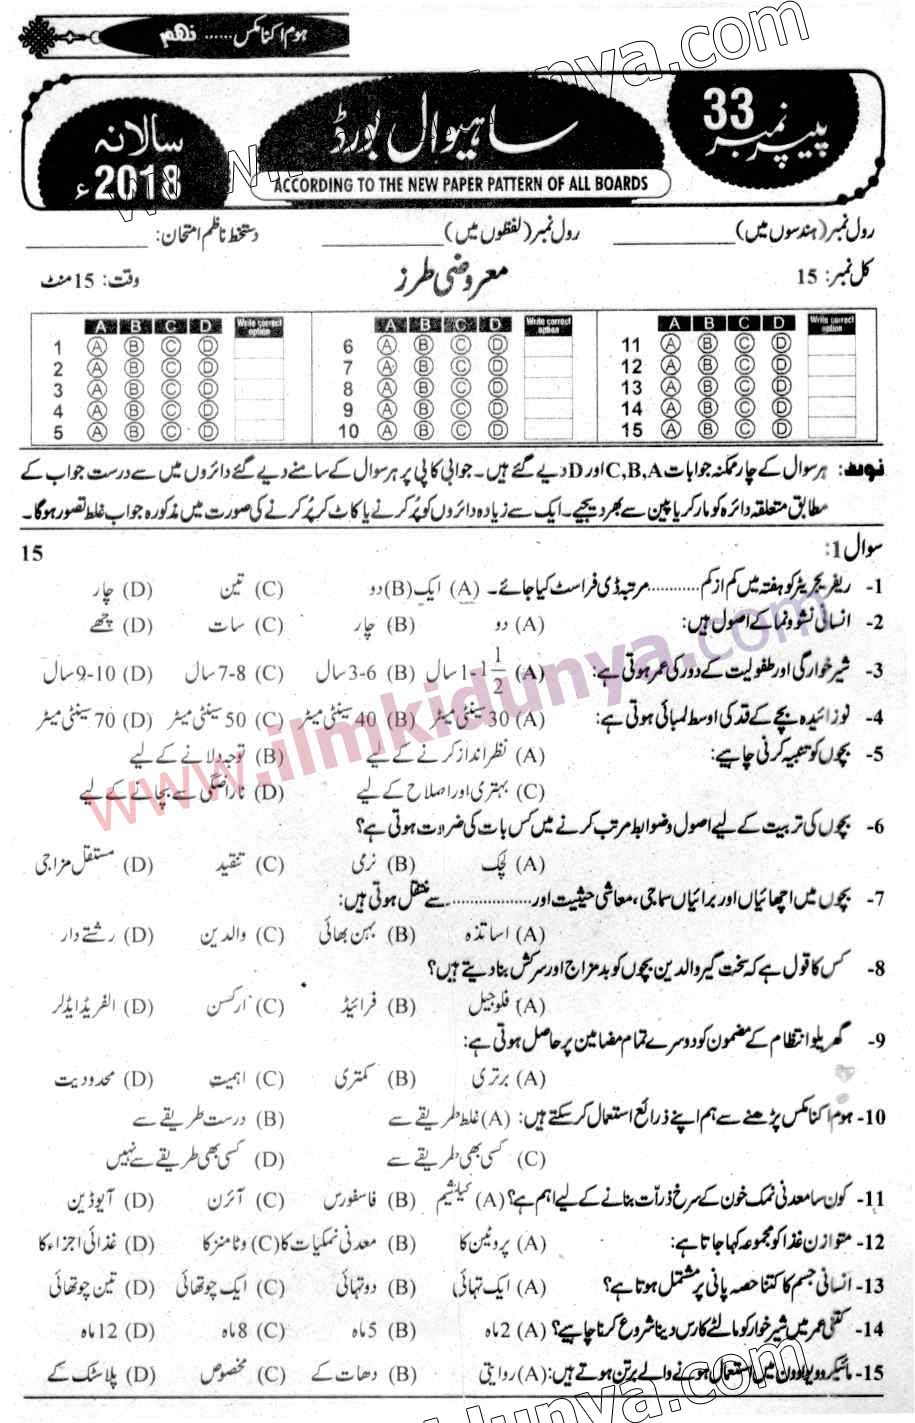 ہوم اکنامکس ...... نہم
پیپر نمبر 33
ساہیوال بورڈ
سالانہ 2018ء
ACCORDING TO THE NEW PAPER PATTERN OF ALL BOARDS
رول نمبر (ہندسوں میں) ____________ رول نمبر (لفظوں میں) ____________ دستخط ناظم امتحان: ____________
کل نمبر: 15 معروضی طرز وقت: 15 منٹ
A B C D Write correct option A B C D Write correct option A B C D Write correct option
1 A B C D 6 A B C D 11 A B C D
2 A B C D 7 A B C D 12 A B C D
3 A B C D 8 A B C D 13 A B C D
4 A B C D 9 A B C D 14 A B C D
5 A B C D 10 A B C D 15 A B C D
نوٹ: ہر سوال کے چار ممکنہ جوابات C,B,A اور D دیے گئے ہیں۔ جوابی کاپی پر ہر سوال کے سامنے دیے گئے دائروں میں سے درست جواب کے
مطابق متعلقہ دائرہ کو مارکر یا پین سے بھر دیجیے۔ ایک سے زیادہ دائروں کو پُر کرنے یا کاٹ کر پُر کرنے کی صورت میں مذکورہ جواب غلط تصور ہوگا۔
سوال 1: 15
1- ریفریجریٹر کو ہفتہ میں کم از کم ............ مرتبہ ڈی فراسٹ کیا جائے۔ (A) ایک (B) دو (C) تین (D) چار
2- انسانی نشوونما کے اصول ہیں: (A) دو (B) چار (C) سات (D) چھے
3- شیر خوارگی اور طفولیت کے دور کی عمر ہوتی ہے: (A) 1-1 1/2 سال (B) 3-6 سال (C) 7-8 سال (D) 9-10 سال
4- نوزائیدہ بچے کے قد کی اوسط لمبائی ہوتی ہے: (A) 30 سینٹی میٹر (B) 40 سینٹی میٹر (C) 50 سینٹی میٹر (D) 70 سینٹی میٹر
5- بچوں کو تنبیہ کرنی چاہیے: (A) نظر انداز کرنے کے لیے (B) توجہ دلانے کے لیے
(C) بہتری اور اصلاح کے لیے (D) ناراضگی سے بچانے کے لیے
6- بچوں کی تربیت کے لیے اصول وضوابط مرتب کرنے میں کس بات کی ضرورت ہوتی ہے؟
(A) لچک (B) نرمی (C) تنقید (D) مستقل مزاجی
7- بچوں میں اچھائیاں اور برائیاں سماجی، معاشی حیثیت اور .................. سے منتقل ہوتی ہیں:
(A) اساتذہ (B) بہن بھائی (C) والدین (D) رشتے دار
8- کس کا قول ہے کہ سخت گیر والدین بچوں کو بدمزاج اور سرکش بنا دیتے ہیں؟
(A) فلوجیل (B) فرائیڈ (C) ارکسن (D) الفریڈ ایڈلر
9- گھریلو انتظام کے مضمون کو دوسرے تمام مضامین پر حاصل ہوتی ہے:
(A) برتری (B) کمتری (C) اہمیت (D) محدودیت
10- ہوم اکنامکس پڑھنے سے ہم اپنے ذرائع استعمال کر سکتے ہیں: (A) غلط طریقے سے (B) درست طریقے سے
(C) کسی بھی طریقے سے (D) کسی بھی طریقے سے نہیں
11- کون سا معدنی نمک خون کے سرخ ذرّات بنانے کے لیے اہم ہے؟ (A) کیلشیم (B) فاسفورس (C) آئرن (D) آیوڈین
12- متوازن غذا کو مجموعہ کہا جاتا ہے: (A) پروٹین کا (B) معدنی نمکیات کا (C) وٹامنز کا (D) غذائی اجزاء کا
13- انسانی جسم کا کتنا حصہ پانی پر مشتمل ہوتا ہے؟ (A) ایک تہائی (B) دو تہائی (C) ایک چوتھائی (D) تین چوتھائی
14- کتنی عمر میں شیر خوار کو مالٹے کا رس دینا شروع کرنا چاہیے؟ (A) 2 ماہ (B) 5 ماہ (C) 8 ماہ (D) 12 ماہ
15- مائیکرو ویو اوون میں استعمال ہونے والے برتن ہوتے ہیں: (A) روایتی (B) دھات کے (C) مخصوص (D) پلاسٹک کے
www.ilmkidunya.com